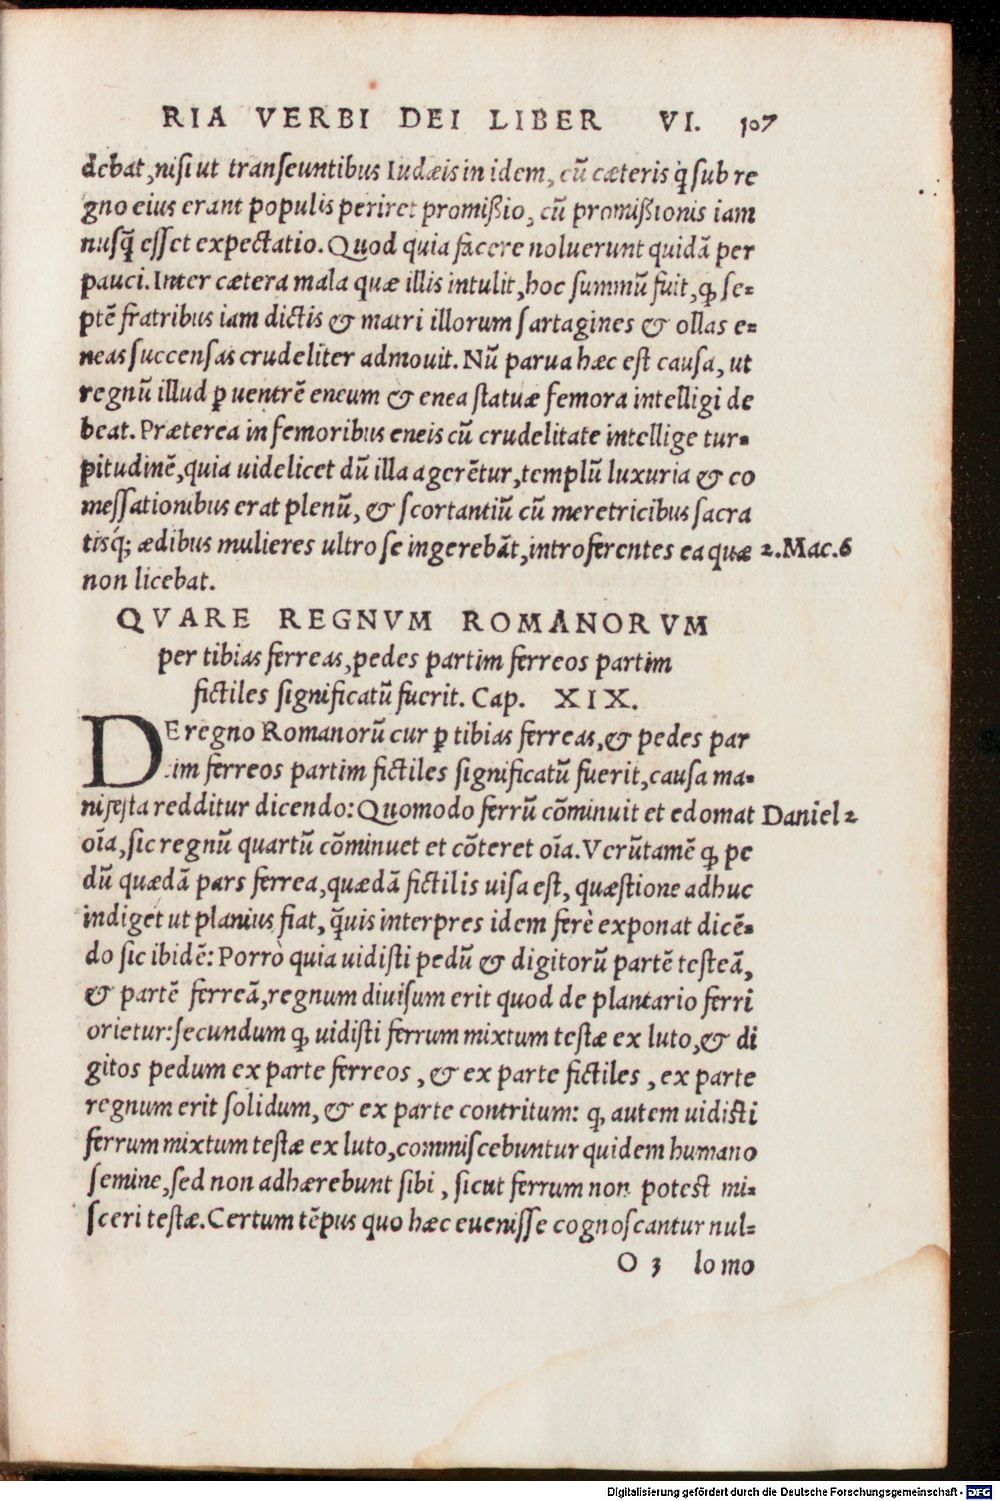 RIA VERBI DEI LIBER VI. 107
debat, nisi ut transeuntibus Iudæis in idem, cũ cæteris q̃ sub re
gno eius erant populis periret promißio, cũ promißionis iam
nusq̃ esset expectatio. Quod quia facere noluerunt quidã per
pauci. Inter cætera mala quæ illis intulit, hoc summũ fuit, ꝙ se-
ptẽ fratribus iam dictis & matri illorum sartagines & ollas e-
neas succensas crudeliter admouit. Nũ parua hæc est causa, ut
regnũ illud ꝑ uentrẽ eneum & enea statuæ femora intelligi de
beat. Præterea in femoribus eneis cũ crudelitate intellige tur-
pitudinẽ, quia uidelicet dũ illa agerẽtur, templũ luxuria & co
messationibus erat plenũ, & scortantiũ cũ meretricibus sacra
tisq́; ædibus mulieres ultro se ingerebãt, introferentes ea quæ 2. Mac. 6
non licebat.
QVARE REGNVM ROMANORVM
per tibias ferreas, pedes partim ferreos partim
fictiles significatũ fuerit. Cap. XIX.
DE regno Romanorũ cur ꝑ tibias ferreas, & pedes par
tim ferreos partim fictiles significatũ fuerit, causa ma-
nifesta redditur dicendo: Quomodo ferrũ cõminuit et edomat Daniel 2
oĩa, sic regnũ quartũ cõminuet et cõteret oĩa. Verũtamẽ ꝙ pe
dũ quædã pars ferrea, quædã fictilis uisa est, quæstione adhuc
indiget ut planius fiat, q̃uis interpres idem ferè exponat dicẽ-
do sic ibidẽ: Porrò quia uidisti pedũ & digitorũ partẽ testeã,
& partẽ ferreã, regnum diuisum erit quod de plantario ferri
orietur: secundum ꝙ uidisti ferrum mixtum testæ ex luto, & di
gitos pedum ex parte ferreos, & ex parte fictiles, ex parte
regnum erit solidum, & ex parte contritum: ꝙ autem uidisti
ferrum mixtum testæ ex luto, commiscebuntur quidem humano
semine, sed non adhærebunt sibi, sicut ferrum non potest mi-
sceri testæ. Certum tẽpus quo hæc euenisse cognoscantur nul-
O 3 lo mo
Digitalisierung gefördert durch die Deutsche Forschungsgemeinschaft - DFG